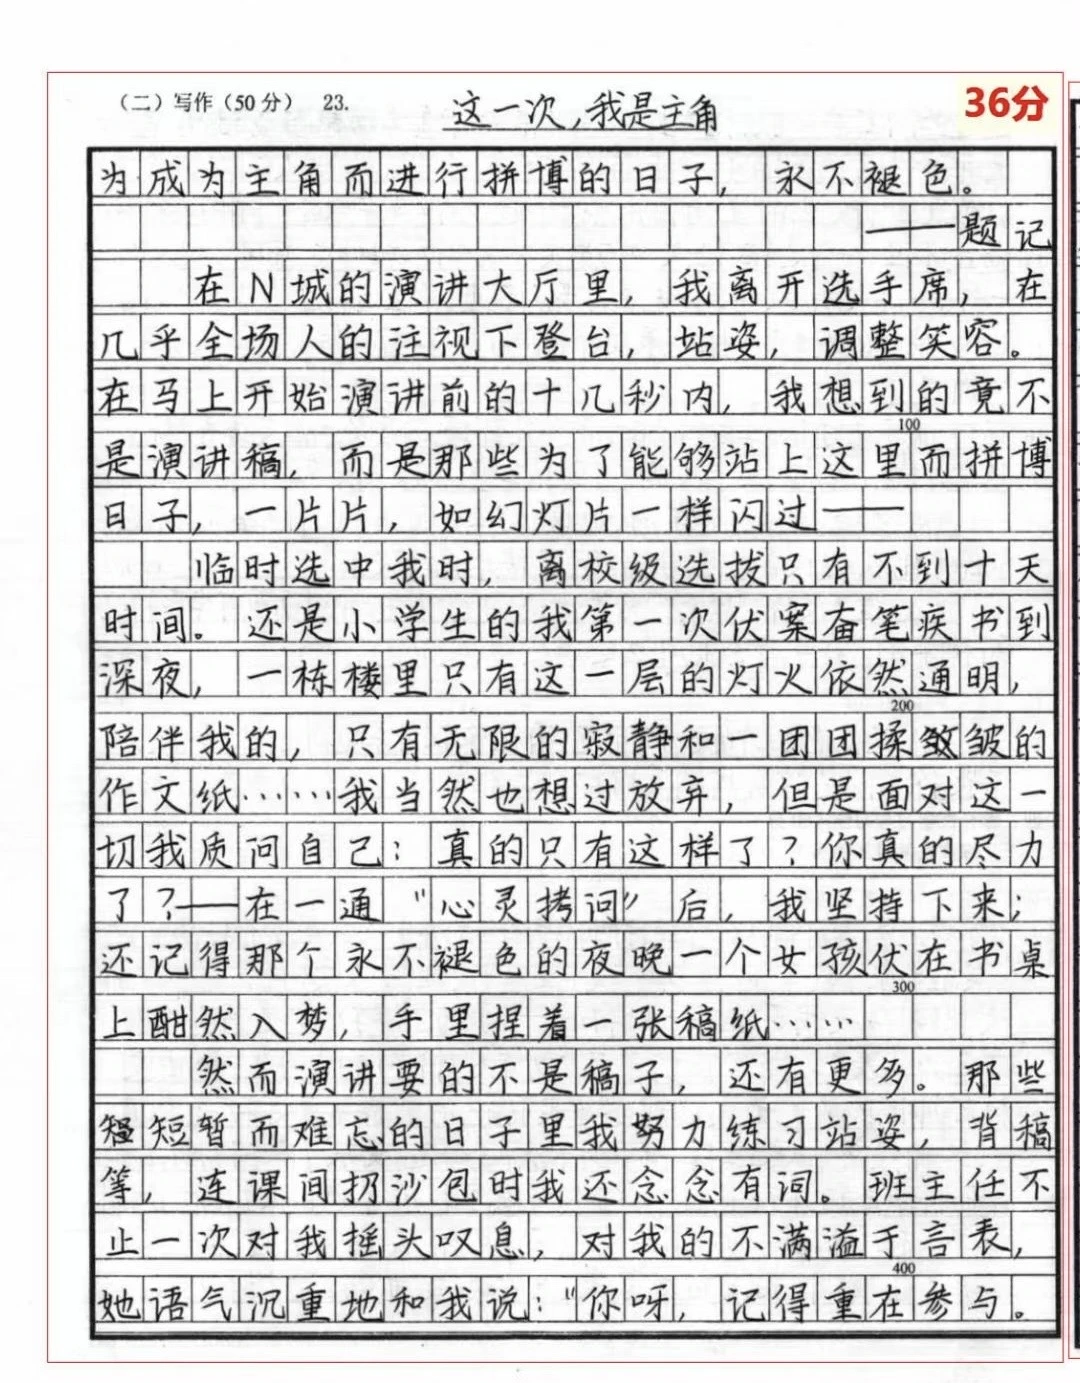 (二)写作(50分) 23.
36分
这一次,我是主角
为成为主角而进行拼博的日子，永不褪色。
——题记
在N城的演讲大厅里，我离开选手席，在
几乎全场人的注视下登台，站姿，调整笑容。
在马上开始演讲前的十几秒内，我想到的竟不
100
是演讲稿，而是那些为了能够站上这里而拼博
日子，一片片，如幻灯片一样闪过——
临时选中我时，离校级选拔只有不到十天
时间。还是小学生的我第一次伏案奋笔疾书到
深夜，一栋楼里只有这一层的灯火依然通明，
200
陪伴我的，只有无限的寂静和一团团揉皱的
作文纸……我当然也想过放弃，但是面对这一
切我质问自己：真的只有这样了？你真的尽力
了？——在一通“心灵拷问”后，我坚持下来；
还记得那个永不褪色的夜晚一个女孩伏在书桌
300
上酣然入梦，手里捏着一张稿纸……
然而演讲要的不是稿子，还有更多。那些
短暂而难忘的日子里我努力练习站姿，背稿
等，连课间扔沙包时我还念念有词。班主任不
止一次对我摇头叹息，对我的不满溢于言表，
400
她语气沉重地和我说：“你呀，记得重在参与。